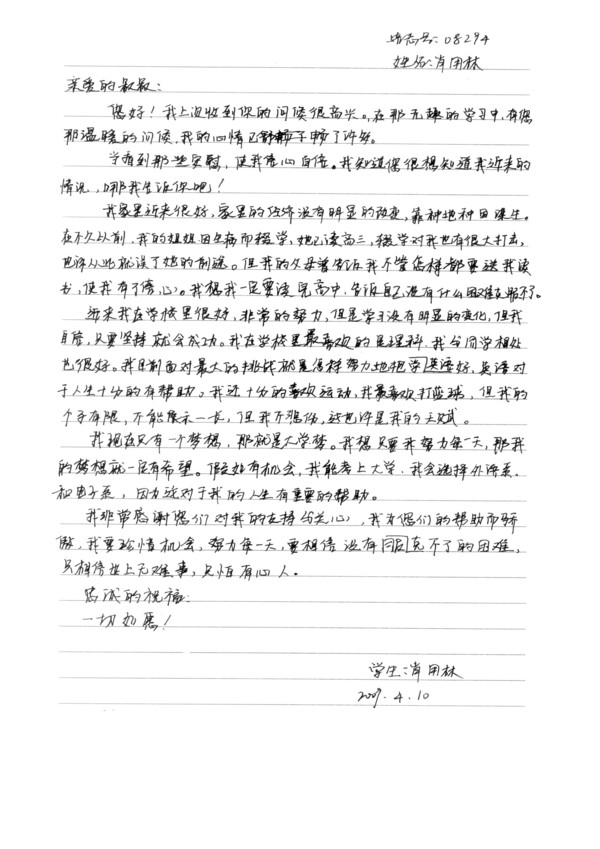 培志号:08294
姓名:肖用林
亲爱的叔叔:
您好!我上次收到你的问候很高兴。在那无趣的学习中,有您
那温暖的问候,我的心情已舒畅了许多。
当看到那些安慰,使我信心自信。我知道您很想知道我近来的
情况,哪我告诉你吧!
我家里近来很好,家里的经济没有明显的改变,靠种地种田谋生。
在不久以前,我的姐姐因生病而辍学,她已读高三,辍学对我也有很大打击,
也许从此就误了她的前途。但我的父母曾告诉我不管怎样都要送我读
书,使我有了信心。我想我一定要读完高中,告诉自己没有什么困难克服不了。
近来我在学校里很好,非常的努力,但是学习没有明显的变化,但我
自信,只要坚持就会成功。我在学校里最喜欢的是理科,我与同学相处
也很好。我目前面对最大的挑战就是怎样努力地把学英语好,英语对
于人生十分的有帮助。我还十分的喜欢运动,我最喜欢打蓝球,但我的
个子有限,不能展示一长,但我不悲伤,这也许是我的天赋。
我现在只有一个梦想,那就是大学梦。我想只要我努力每一天,那我
的梦想就一定有希望。假如有机会,我能考上大学,我会选择外语系
和电子系,因为这对于我的人生有重要的帮助。
我非常感谢您们对我的支持与关心,我为您们的帮助而骄
傲,我要珍惜机会,努力每一天,要相信没有克不了的困难,
只相信世上无难事,只怕有心人。
忠诚的祝福:
一切如愿!
学生:肖用林
2009.4.10